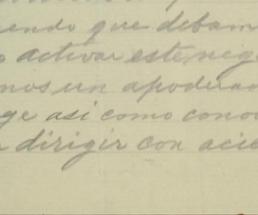 endo que debam
o activar este nego
mos un apodera
ge asi como cono
a dirigir con acie